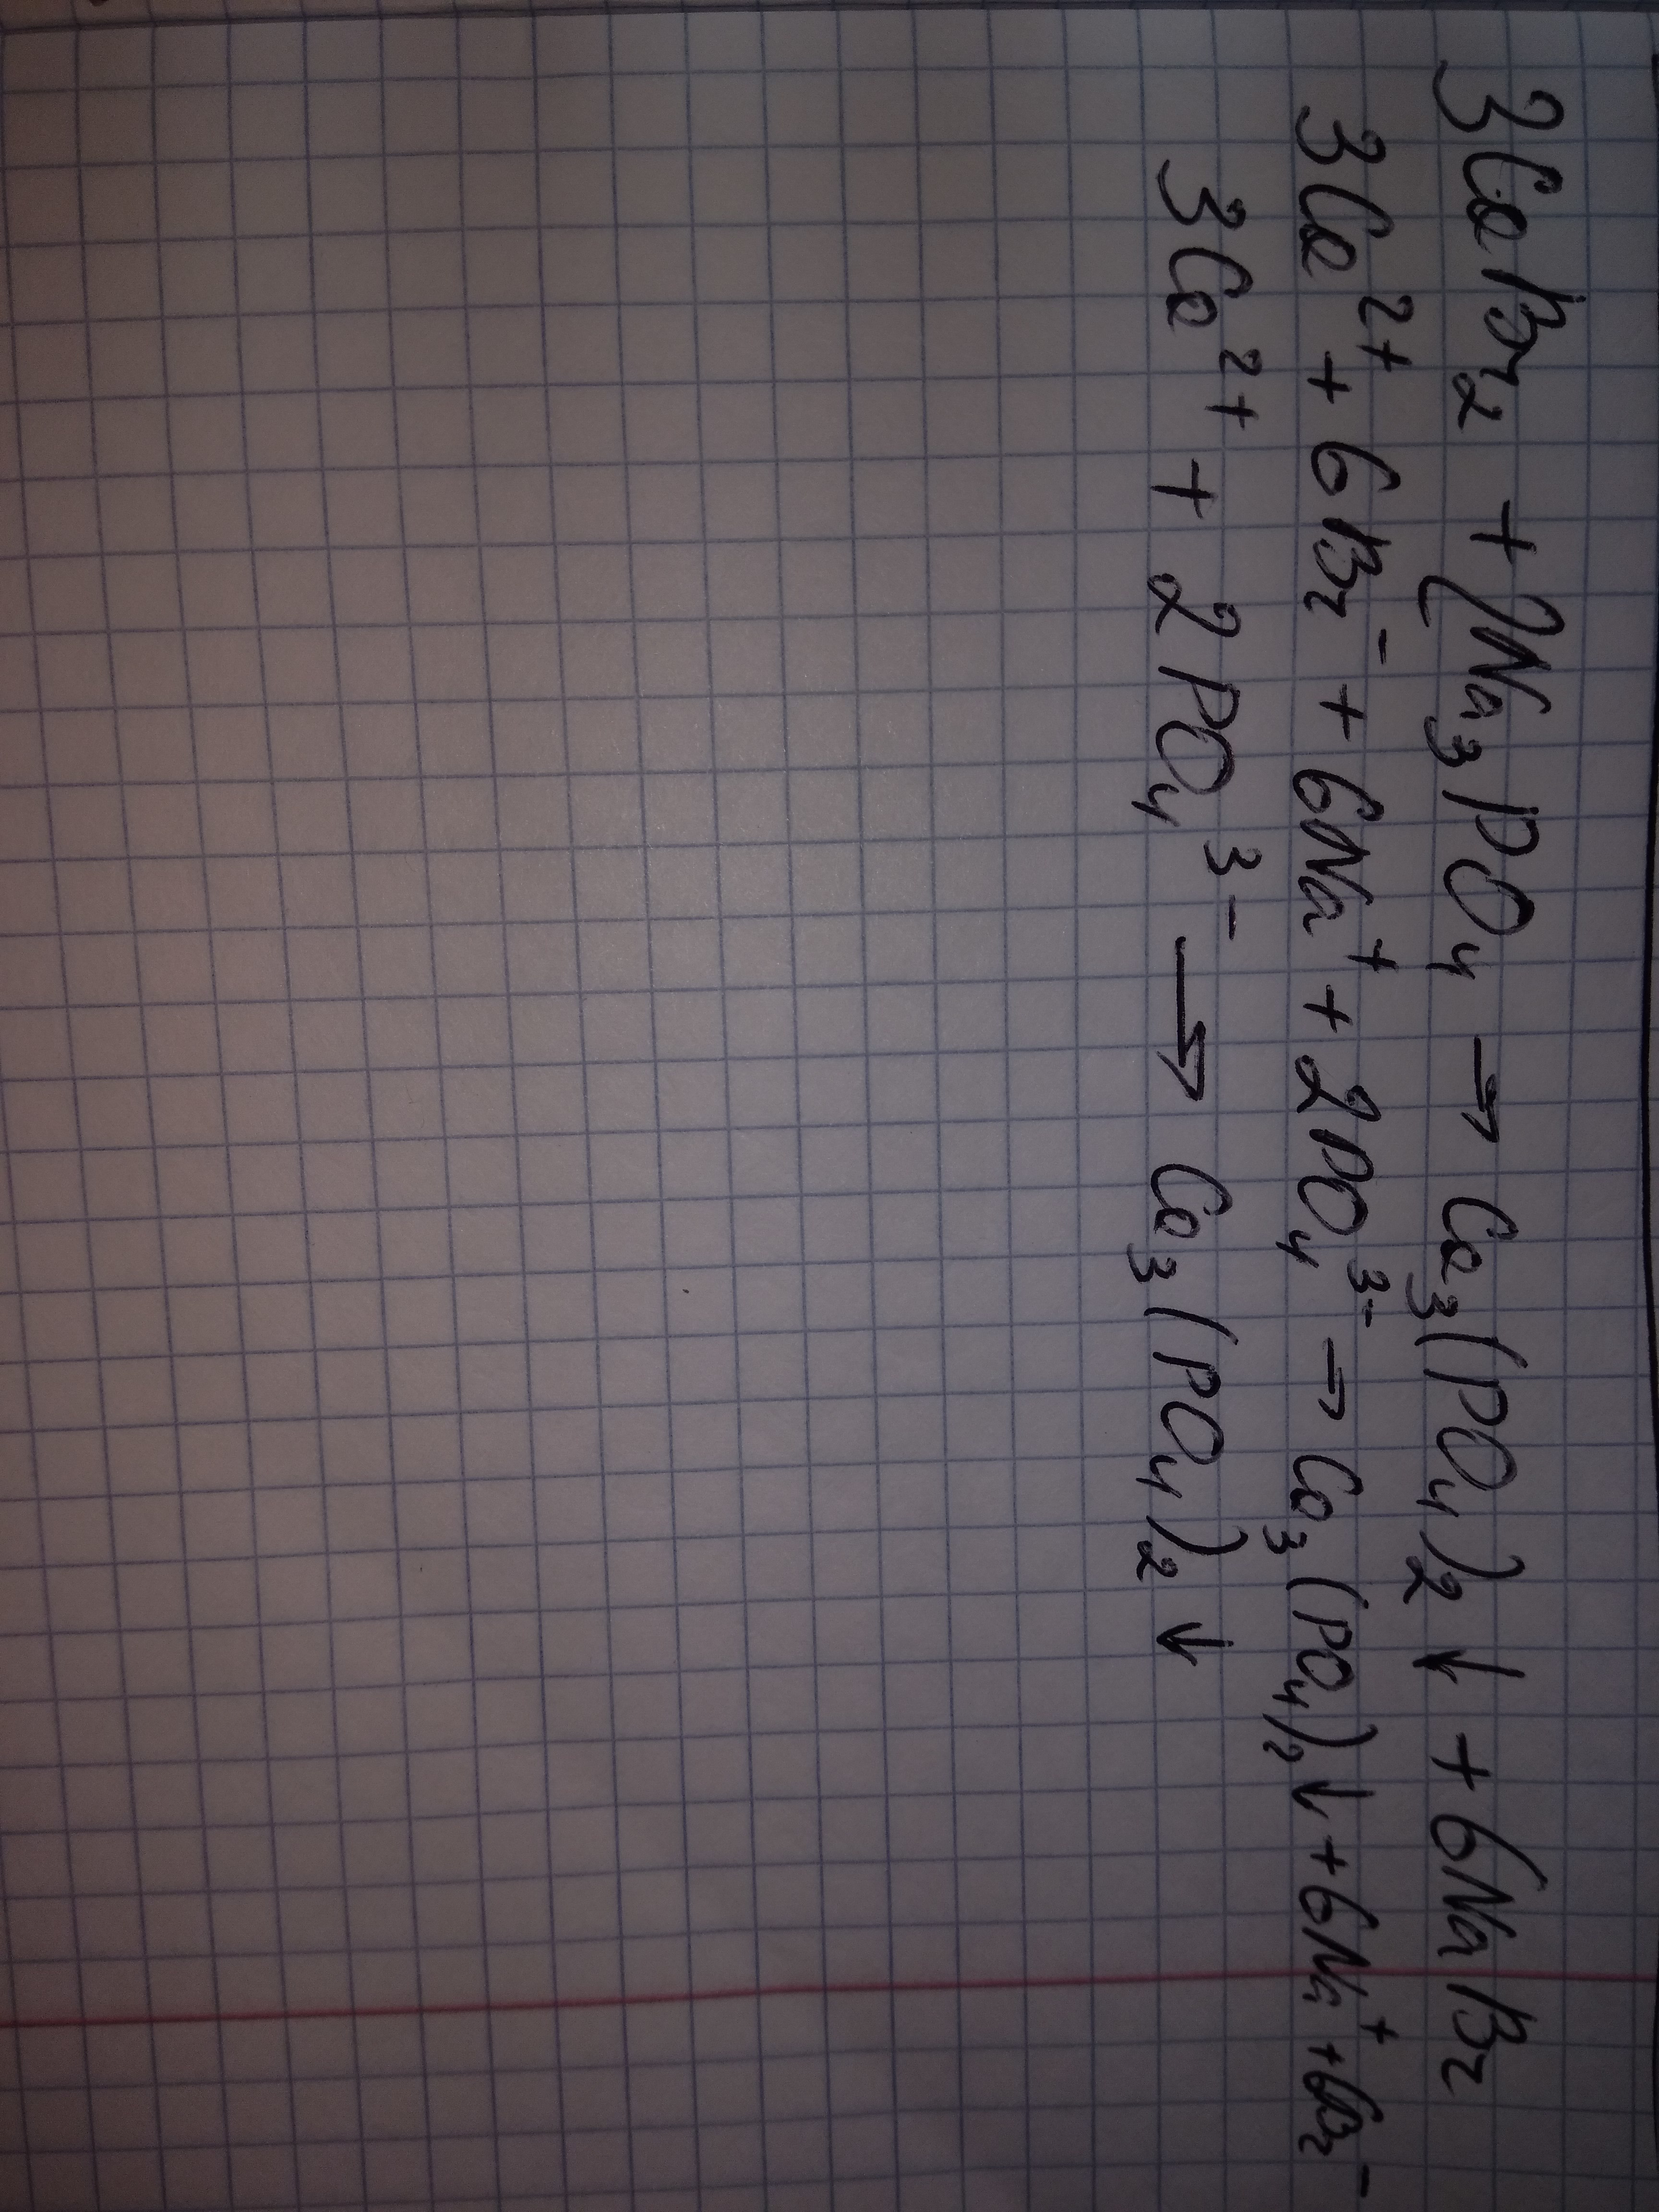 3CaBr₂ + 2Na₃PO₄ → Ca₃(PO₄)₂↓ + 6NaBr
3Ca²⁺ + 6Br⁻ + 6Na⁺ + 2PO₄³⁻ → Ca₃(PO₄)₂↓ + 6Na⁺ + 6Br⁻
3Ca²⁺ + 2PO₄³⁻ → Ca₃(PO₄)₂↓